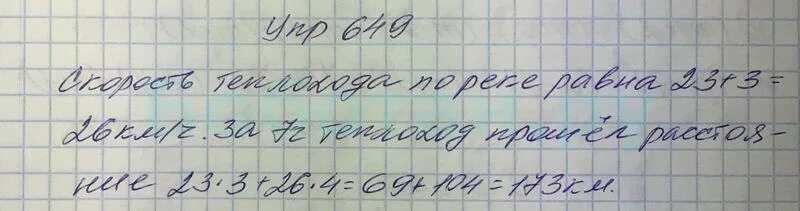 Упр 649
Скорость теплохода по реке равна 23+3=
26км/ч. За 7ч теплоход прошёл расстоя-
ние 23·3+26·4=69+104=173км.